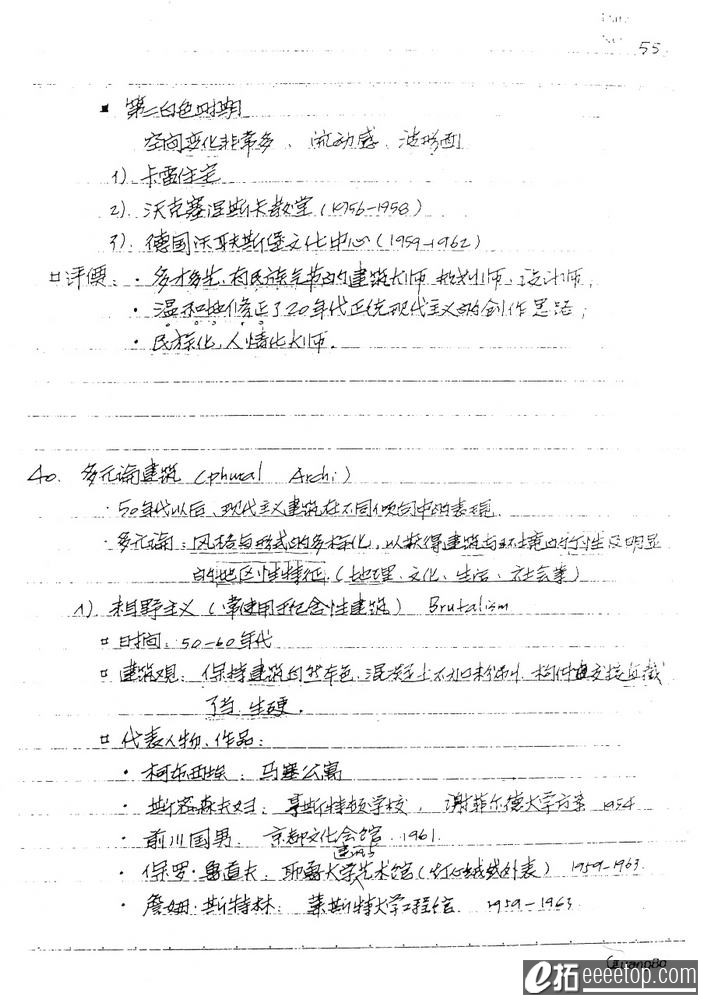 55
▪ 第二白色时期
空间变化非常多、流动感、波形面
1). 卡雷住宅
2). 沃克赛涅斯卡教堂(1956-1958)
3). 德国沃耳夫斯堡文化中心(1959-1962)
□评價: · 多才多生,有民族气节的建筑大师 规划师、设计师;
· 温和地修正了20年代正统现代主义的创作思路;
· 民族化,人情化大师.
40. 多元论建筑 (phural Archi)
· 50年代以后、现代主义建筑在不同倾向中的表现.
· 多元论:风格与形式的多样化,以获得建筑与环境的个性及明显
的地区性特征.(地理、文化、生活、社会等)
1) 粗野主义(常使用于纪念性建筑) Brutalism
□ 时间: 50-60年代
□ 建筑观: 保持建筑自然本色,混凝土不加粉刷,构件直接
了当、生硬.
□ 代表人物、作品:
· 柯布西埃: 马塞公寓
· 斯密森夫妇: 亨斯特顿学校, 谢菲尔德大学方案 1954
· 前川国男. 京都文化会馆 1961.
建筑与
· 保罗·鲁道夫: 耶鲁大学艺术馆(灯心绒外表) 1959-1963.
· 詹姆·斯特林: 莱斯特大学工程馆. 1959-1963
e拓 eeeetop.com